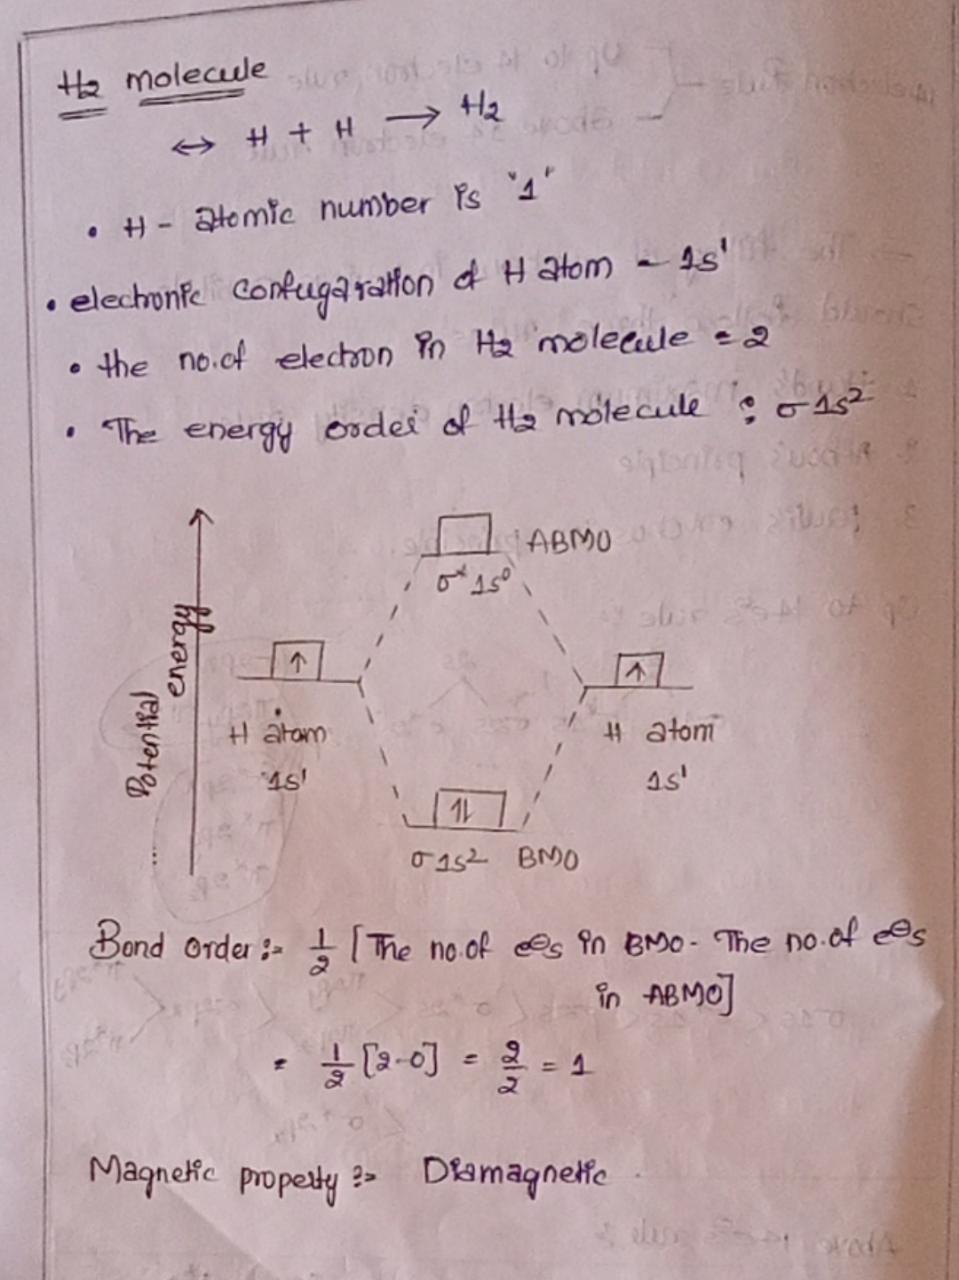 H2 molecule
↔ H + H → H2
• H - atomic number is "1"
• electronic confugaration of H atom - 1s¹
• the no.of electron in H2 molecule = 2
• The energy order of H2 molecule : σ1s²
ABMO
σ* 1s⁰
↑
↑
Potential energy
H atom
H atom
1s¹
1s¹
↑↓
σ1s² BMO
Bond order :- 1/2 [The no.of e⊖s in BMO - The no.of e⊖s
in ABMO]
= 1/2 [2-0] = 2/2 = 1
Magnetic property :- Diamagnetic